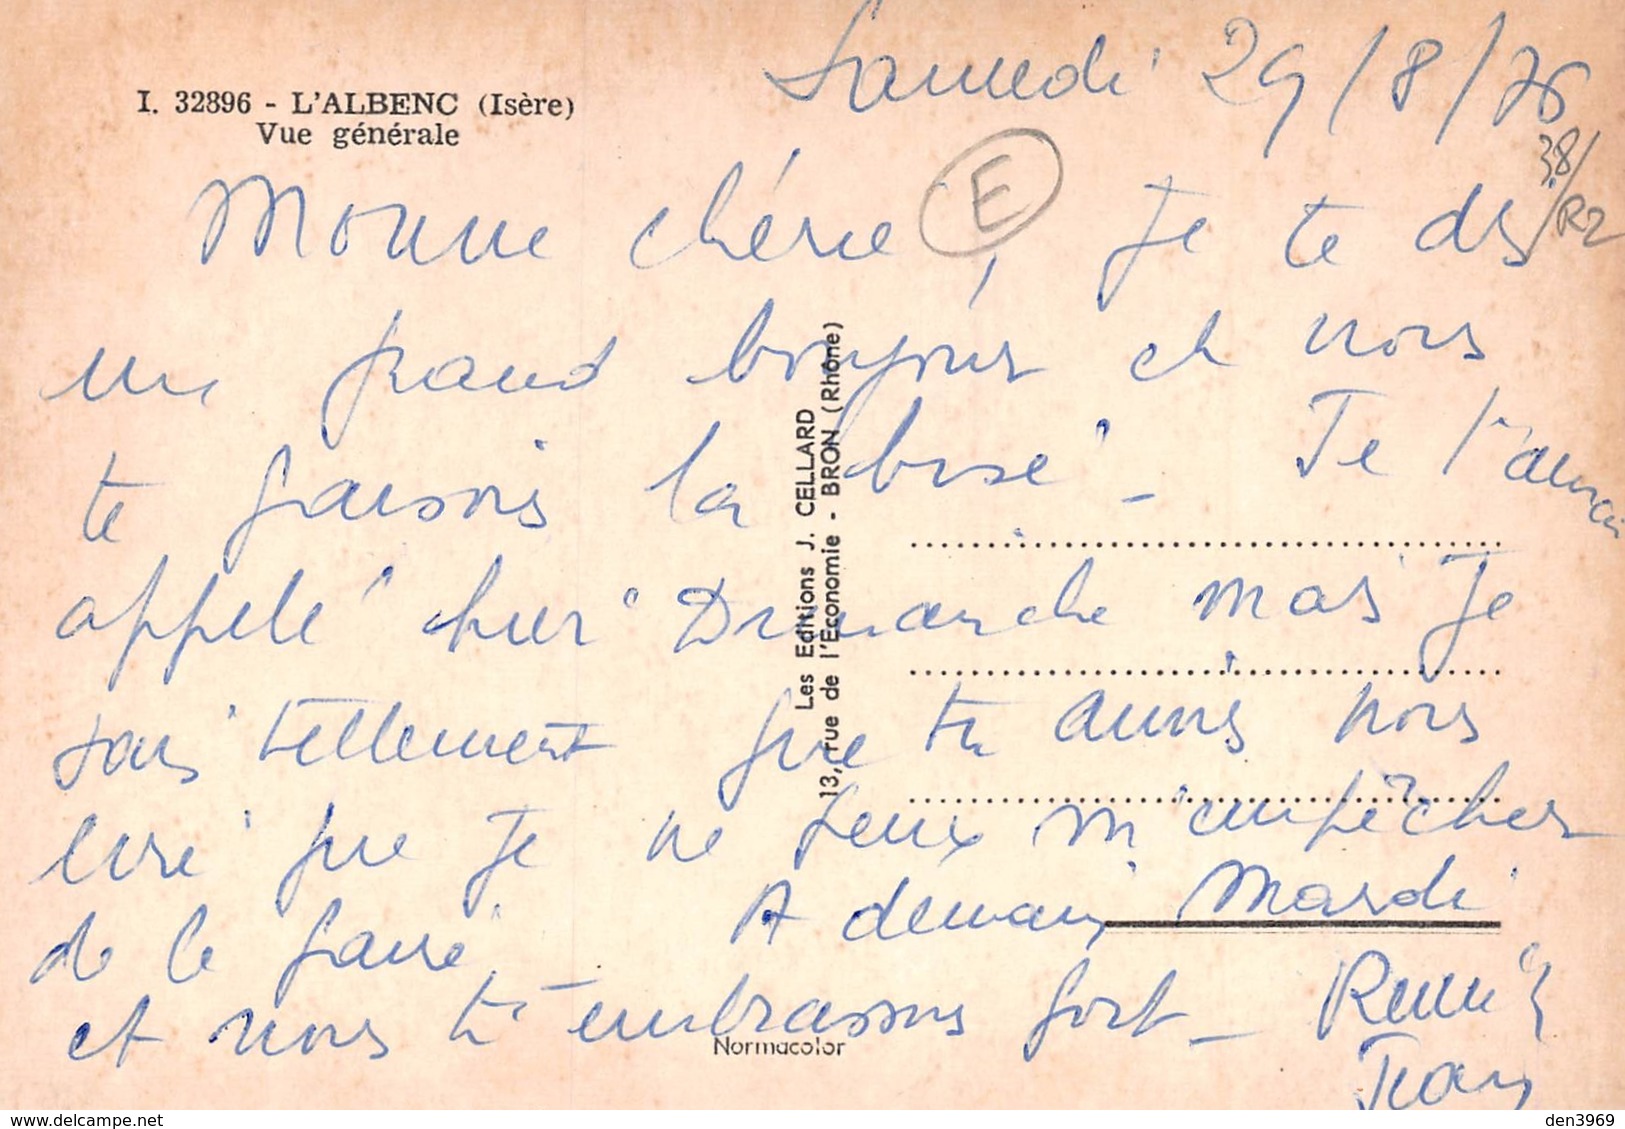 Samedi 29/8/76
I. 32896 - L'ALBENC (Isère)
Vue générale
38/
R2
E
Monne chérie, Je te dis
un grand bonjour et nous
te faisons la bise - Je t'aurai
appelé hier Dimanche mais Je
sais tellement que tu aimes nous
lire que Je ne peux m'empêcher
de le faire. A demain Mardi
et nous t'embrassons fort - 
Jean
Les Editions J. CELLARD
13, rue de l'Economie - BRON (Rhône)
Normacolor
delcampe.net
den3969